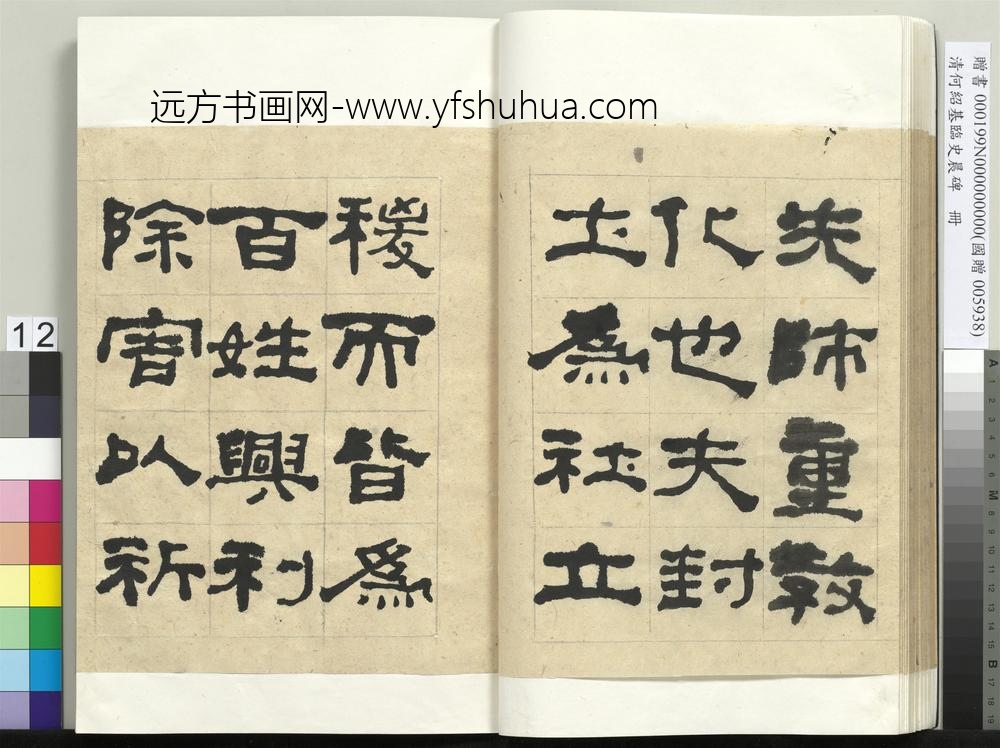 远方书画网-www.yfshuhua.com
贈書 000199N000000000(國贈 005938)
清何紹基臨史晨碑 冊
先師重教
化也夫封
土為社立
稷而皆為
百姓興利
除害以祈
12
A 1 2 3 4 5 6 M 8 9 10 11 12 13 14 15 B 17 18 19